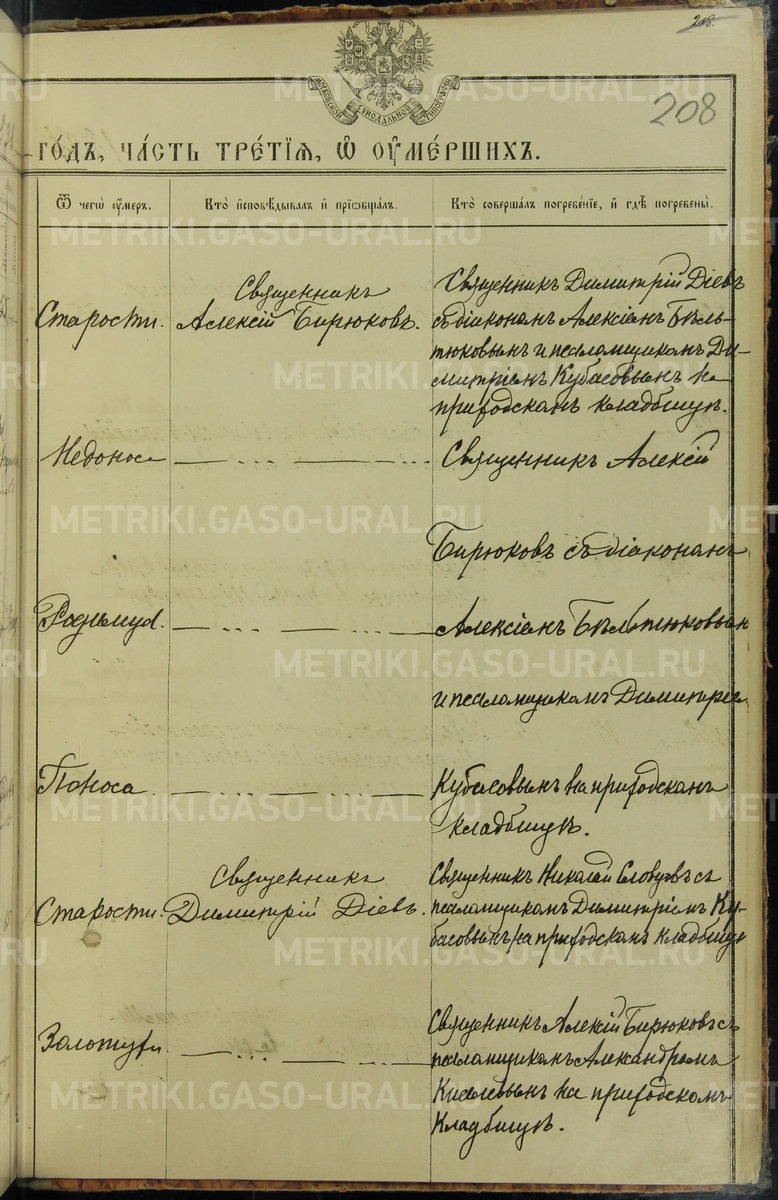 218.
208
МОСКОВСКОЙ СѴНОДАЛЬНОЙ ТИПОГРАФІИ
го́дъ, ча́сть тре́тїѧ, ѡ҆ ᲂу҆ме́ршихъ.
Ѿ чегѡ̀ ᲂу҆́меръ.
Кто̀ и҆сповѣ́дывалъ и҆ прїѡбща́лъ.
Кто̀ соверша́лъ погребе́нїе, и҆ гдѣ̀ погребены̀.
Старости.
Священникъ
Алексій Бирюковъ.
Священникъ Димитрій Діевъ
съ діакономъ Алексіемъ Бѣль-
тюковымъ и псаломщикомъ Ди-
митріемъ Кубасовымъ на
приходскомъ кладбищѣ.
Недоноса
Священникъ Алексій
Бирюковъ съ діакономъ
Родимца.
Алексіемъ Бѣльтюковымъ
и псаломщикомъ Димитріе
Поноса
Кубасовымъ на приходскомъ
кладбищѣ.
Старости.
Священникъ
Димитрій Діевъ.
Священникъ Николай Словцевъ съ
псаломщикомъ Димитріемъ Ку-
басовымъ на приходскомъ кладбищѣ
Золотухи
Священникъ Алексій Бирюковъ съ
псаломщикомъ Александромъ
Киселевымъ на приходскомъ
кладбищѣ.
METRIKI.GASO-URAL.RU